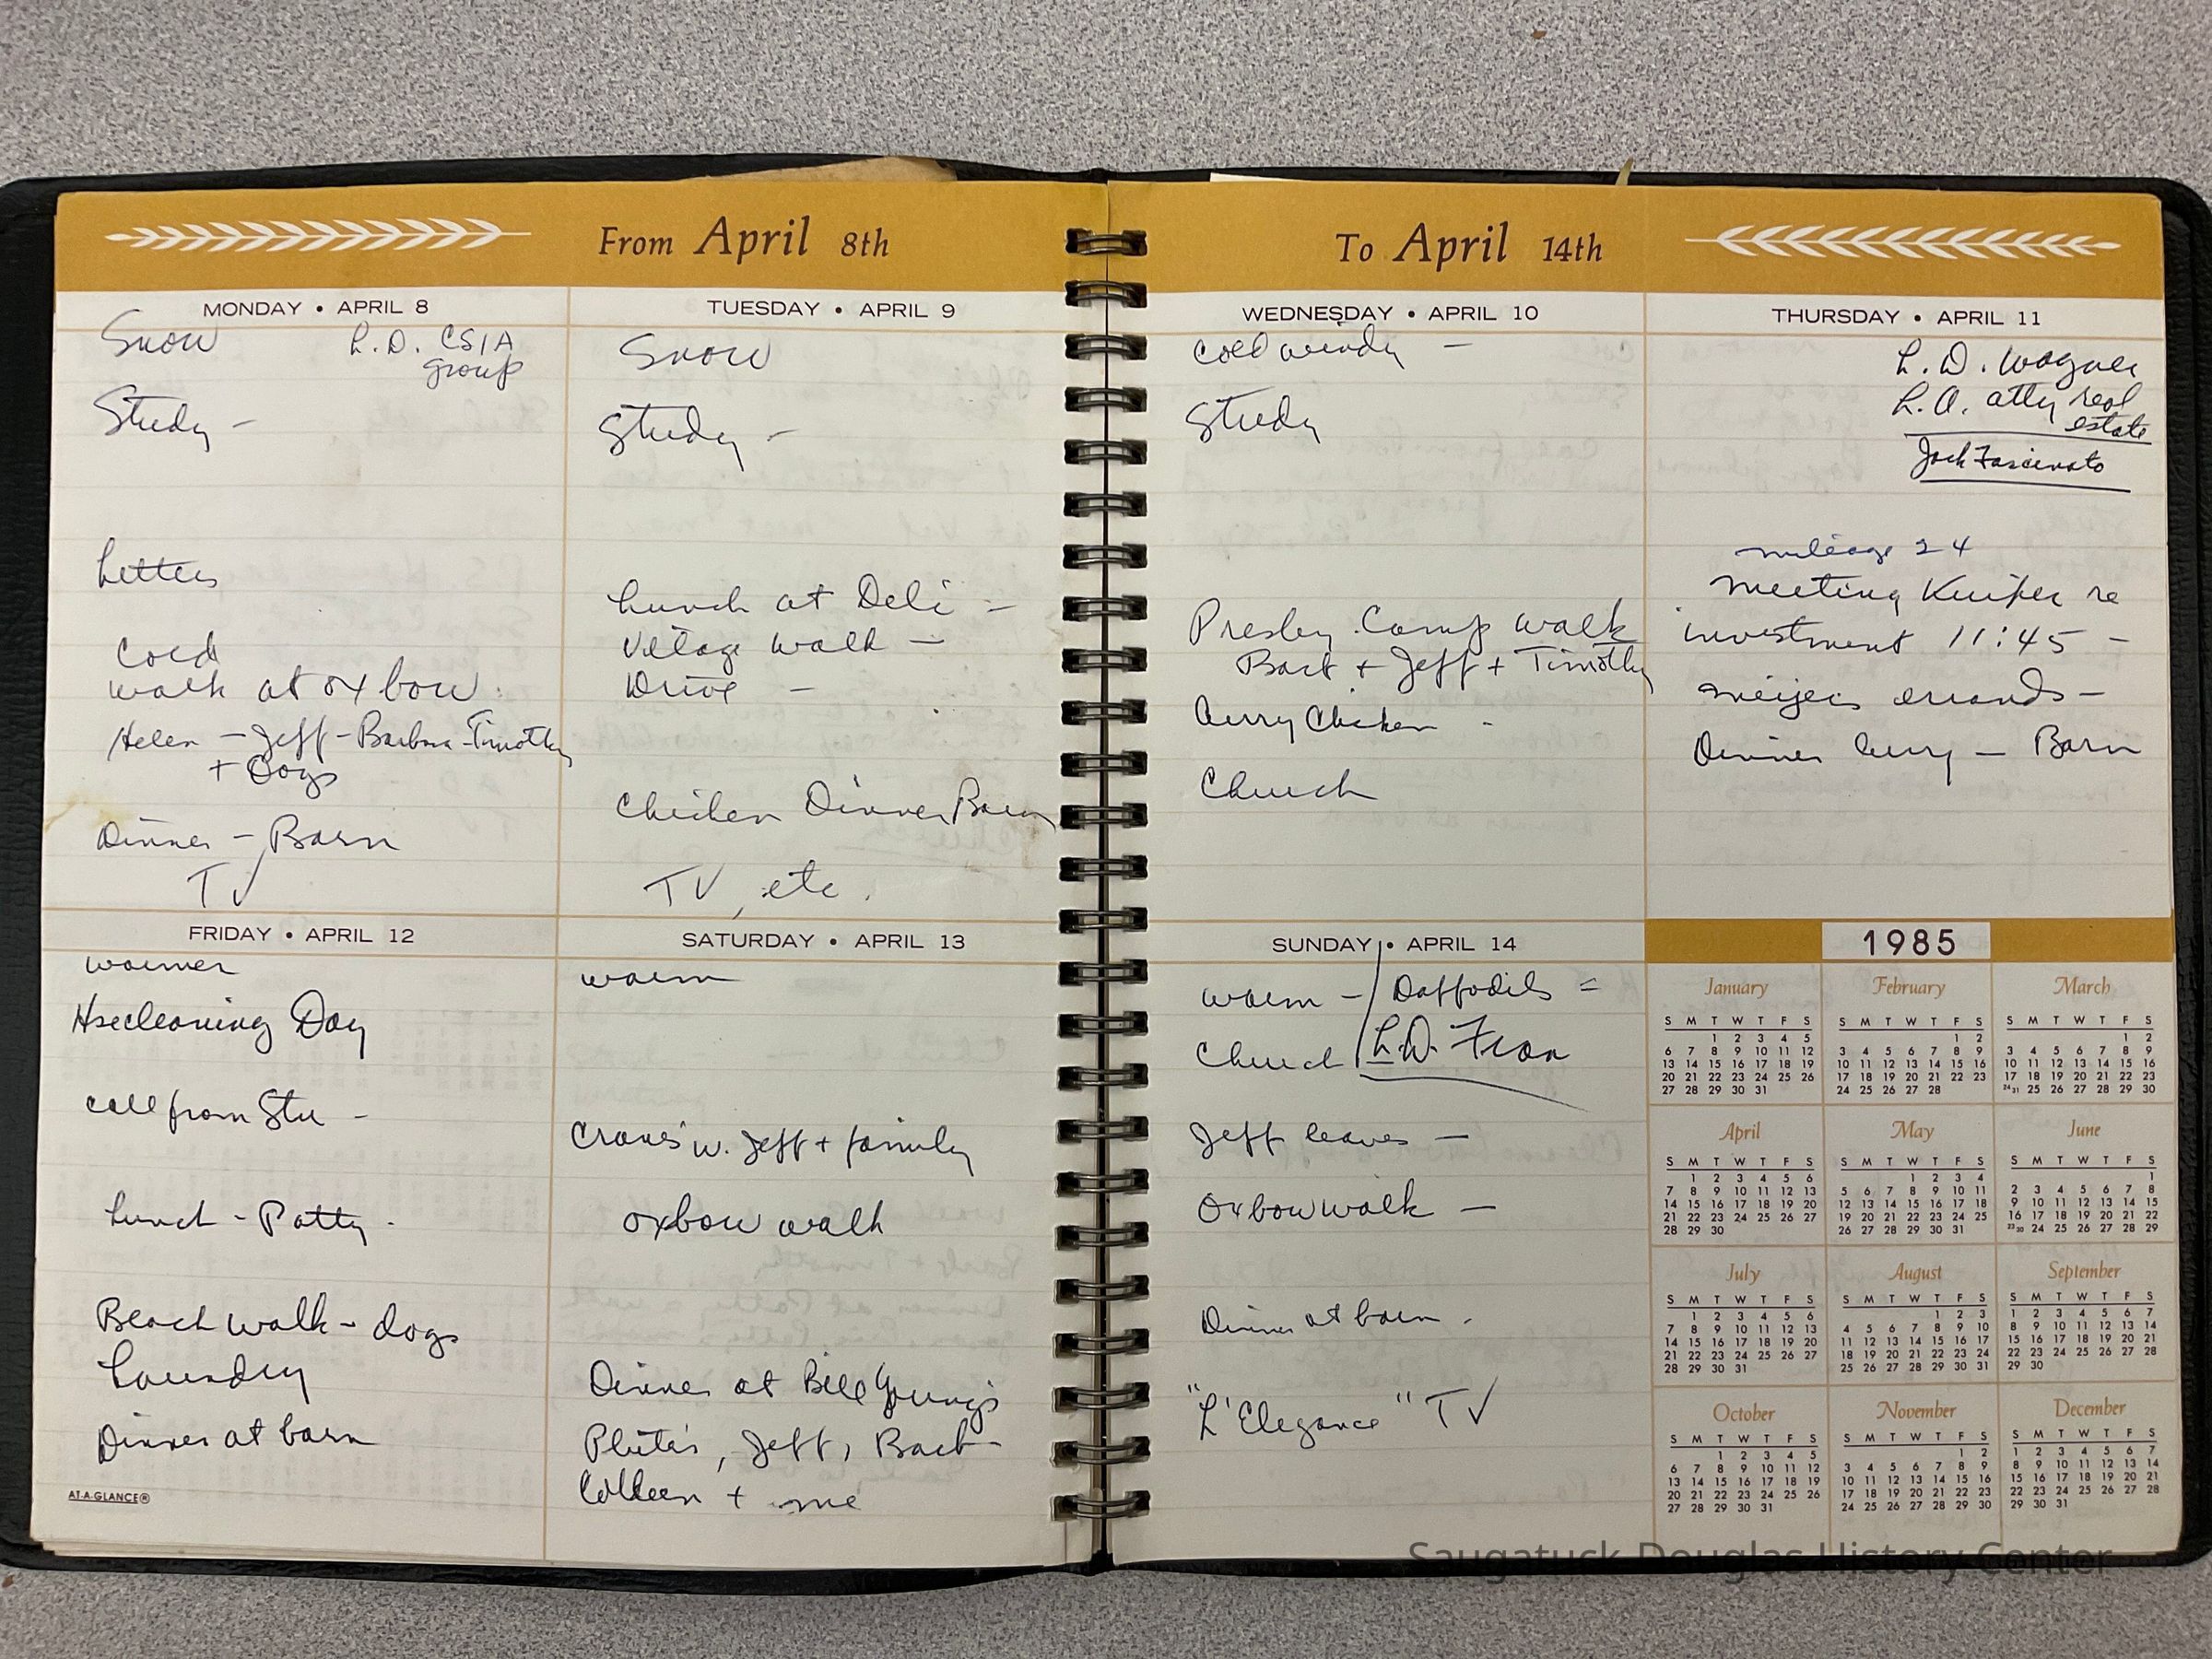 From April 8th
To April 14th
MONDAY • APRIL 8
Snow L.D. CSIA
group
Study -
Letters
Cold
walk at oxbow.
Helen - Jeff - Barbara - Timothy
+ Dogs
Dinner - Barn
TV
TUESDAY • APRIL 9
Snow
Study -
Lunch at Deli -
Village walk -
Drive -
Chicken Dinner Barn
TV, etc.
WEDNESDAY • APRIL 10
cold windy -
Study
Presby. Camp walk
Barb + Jeff + Timothy
Curry Chicken -
Church
THURSDAY • APRIL 11
L.D. Wagner
L.A. atty real
estate
Jack Fascinato
mileage 24
meeting Kuiper re
investment 11:45 -
meijers errands -
Dinner curry - Barn
FRIDAY • APRIL 12
warmer
Hsecleaning Day
call from Stu -
Lunch - Patty -
Beach walk - dogs
Laundry
Dinner at barn
AT-A-GLANCE®
SATURDAY • APRIL 13
warm
Cranes' w. Jeff + family
oxbow walk
Dinner at Bill Young's
Jeff, Barb -
Colleen + me
SUNDAY • APRIL 14
warm - / Daffodils =
Church L.D. Fran
Jeff leaves -
Oxbow walk -
Dinner at barn.
"L'Elegance" TV
1985
January February March
S M T W T F S S M T W T F S S M T W T F S
1 2 3 4 5 1 2 1 2
6 7 8 9 10 11 12 3 4 5 6 7 8 9 3 4 5 6 7 8 9
13 14 15 16 17 18 19 10 11 12 13 14 15 16 10 11 12 13 14 15 16
20 21 22 23 24 25 26 17 18 19 20 21 22 23 17 18 19 20 21 22 23
27 28 29 30 31 24 25 26 27 28 24 31 25 26 27 28 29 30
April May June
S M T W T F S S M T W T F S S M T W T F S
1 2 3 4 5 6 1 2 3 4 1
7 8 9 10 11 12 13 5 6 7 8 9 10 11 2 3 4 5 6 7 8
14 15 16 17 18 19 20 12 13 14 15 16 17 18 9 10 11 12 13 14 15
21 22 23 24 25 26 27 19 20 21 22 23 24 25 16 17 18 19 20 21 22
28 29 30 26 27 28 29 30 31 23 30 24 25 26 27 28 29
July August September
S M T W T F S S M T W T F S S M T W T F S
1 2 3 4 5 6 1 2 3 1 2 3 4 5 6 7
7 8 9 10 11 12 13 4 5 6 7 8 9 10 8 9 10 11 12 13 14
14 15 16 17 18 19 20 11 12 13 14 15 16 17 15 16 17 18 19 20 21
21 22 23 24 25 26 27 18 19 20 21 22 23 24 22 23 24 25 26 27 28
28 29 30 31 25 26 27 28 29 30 31 29 30
October November December
S M T W T F S S M T W T F S S M T W T F S
1 2 3 4 5 1 2 1 2 3 4 5 6 7
6 7 8 9 10 11 12 3 4 5 6 7 8 9 8 9 10 11 12 13 14
13 14 15 16 17 18 19 10 11 12 13 14 15 16 15 16 17 18 19 20 21
20 21 22 23 24 25 26 17 18 19 20 21 22 23 22 23 24 25 26 27 28
27 28 29 30 31 24 25 26 27 28 29 30 29 30 31
Saugatuck-Douglas History Center